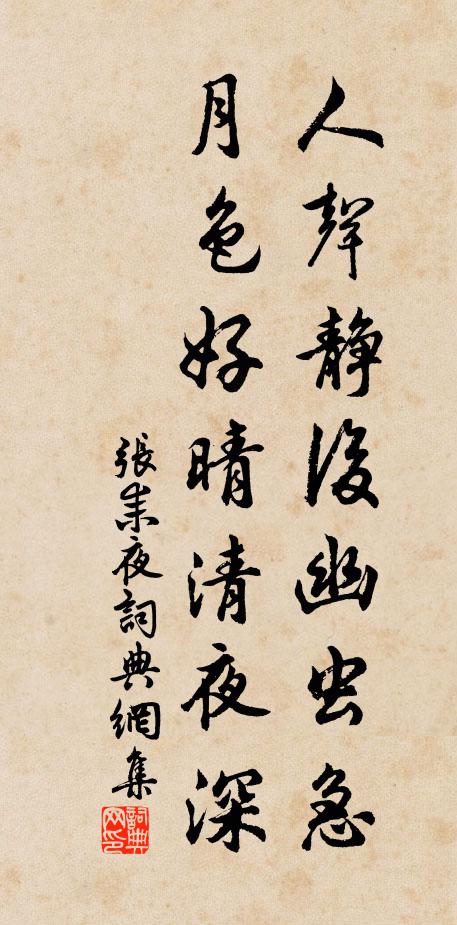 人聲靜後幽虫急
月色好晴清夜深
張耒夜詞典網集
詞典
网印